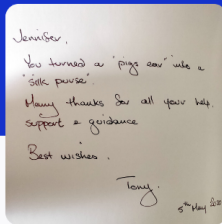 Jennifer,
You turned a "pigs ear" into a
"silk purse".
Many thanks for all your help,
support & guidance
Best wishes.
Tony.
5th May